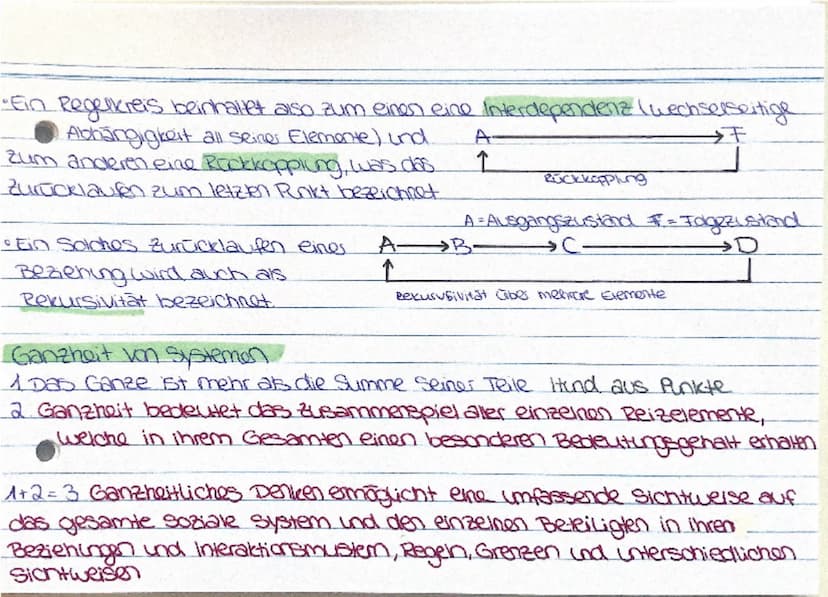 • Ein Regelkreis beinhaltet also zum einen eine Interdependenz (wechselseitige
Abhängigkeit all seiner Elemente) und
zum anderen eine Rückkopplung, was das
Zurücklaufen zum letzten Punkt bezeichnet
A → F
Rückkopplung
A = Ausgangszustand F = Folgezustand
• Ein Solches Zurücklaufen eines
Beziehung wird auch als
Rekursivität bezeichnet
A → B → C → D
Rekursivität über mehrere Elemente
Ganzheit von Systemen
1. Das Ganze ist mehr als die Summe seiner Teile Hund aus Punkte
2. Ganzheit bedeutet das Zusammenspiel aller einzelnen Reizelemente,
welche in ihrem Gesamten einen besonderen Bedeutungsgehalt erhalten
1+2=3 Ganzheitliches Denken ermöglicht eine umfassende Sichtweise auf
das gesamte soziale System und den einzelnen Beteiligten in ihren
Beziehungen und Interaktionsmustern, Regeln, Grenzen und unterschiedlichen
Sichtweisen